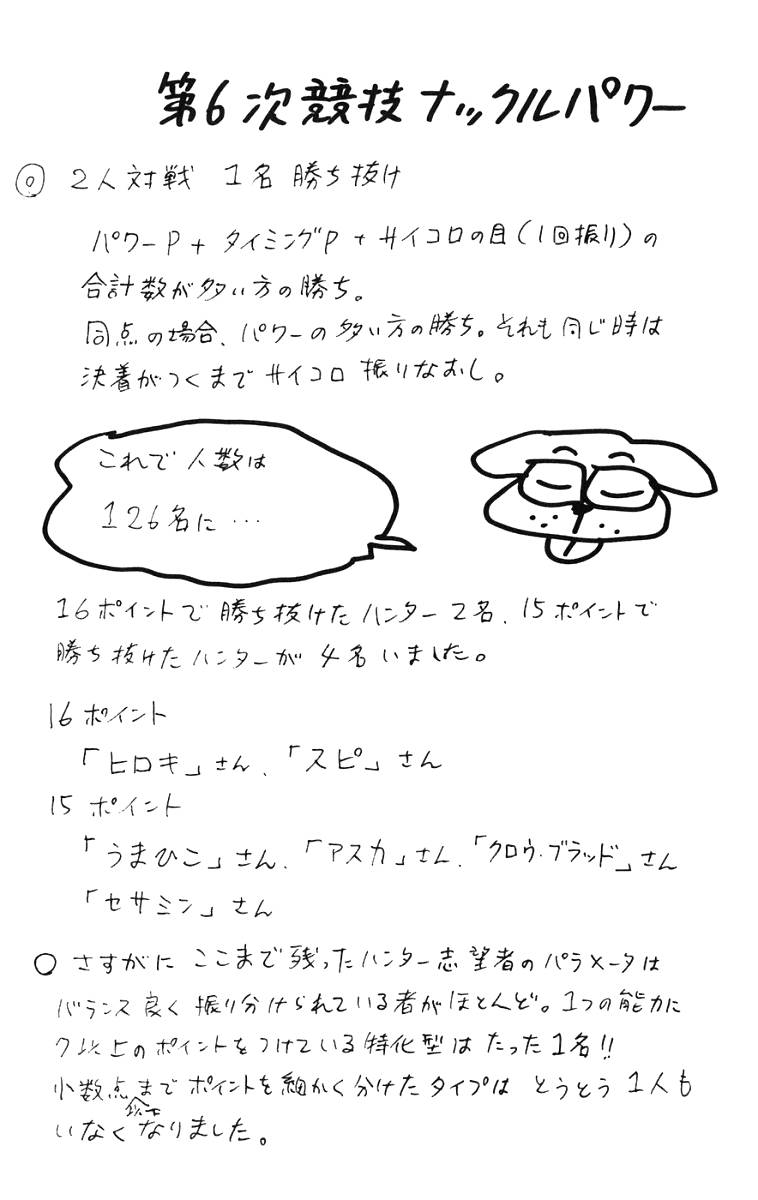 第6次競技ナックルパワー
◎ 2人対戦 1名勝ち抜け
パワーP+タイミングP+サイコロの目(1回振り)の
合計数が多い方の勝ち。
同点の場合、パワーの多い方の勝ち。それも同じ時は
決着がつくまでサイコロ振りなおし。
これで人数は
126名に…
16ポイントで勝ち抜けたハンター2名、15ポイントで
勝ち抜けたハンターが4名いました。
16ポイント
「ヒロキ」さん、「スピ」さん
15ポイント
「うまひこ」さん、「アスカ」さん、「クロウ・ブラッド」さん
「セサミン」さん
○ さすがにここまで残ったハンター志望者のパラメータは
バランス良く振り分けられている者がほとんど。1つの能力に
7以上のポイントをつけている特化型はたった1名!!
小数点以下までポイントを細かく分けたタイプはとうとう1人も
いなくなりました。